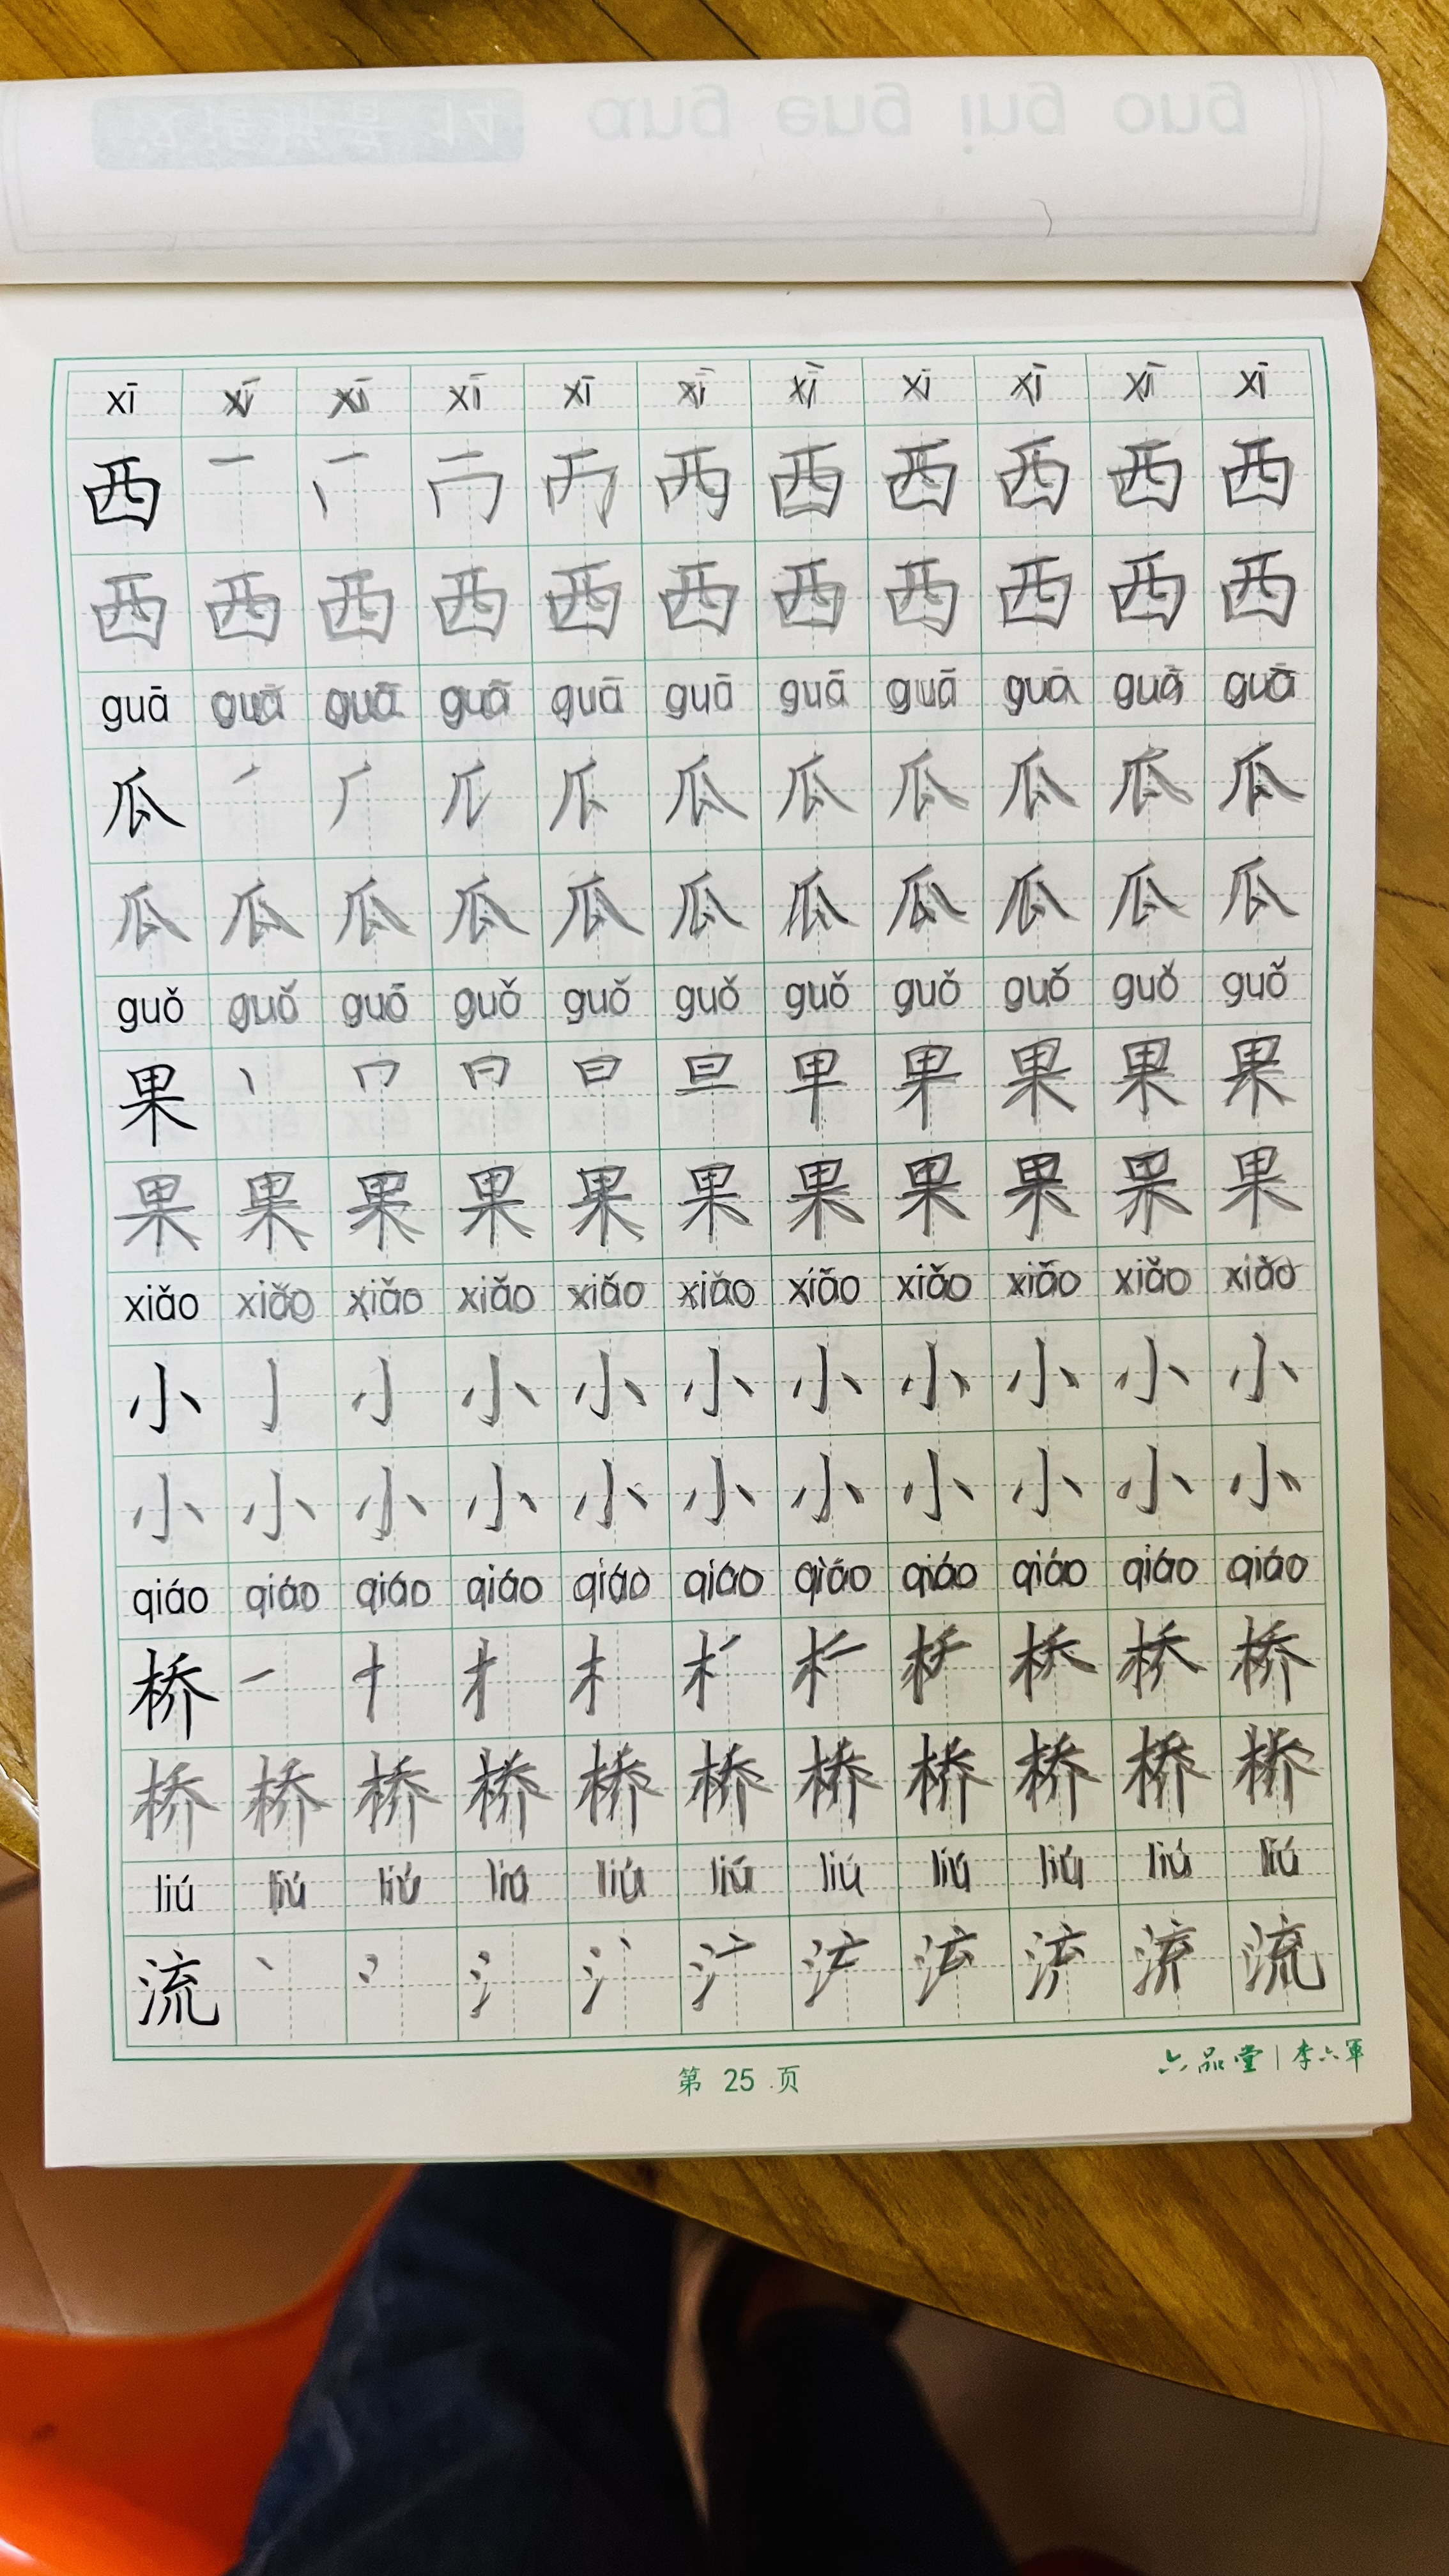 ong ing eng ang
xī xī xī xī xī xī xī xī xī xī xī
西 一 西 西 西 西 西
西 西 西 西 西 西 西 西 西 西 西
guā guā guā guā guā guā guā guā guā guā guā
瓜 瓜 瓜 瓜 瓜 瓜 瓜
瓜 瓜 瓜 瓜 瓜 瓜 瓜 瓜 瓜 瓜 瓜
guǒ guǒ guǒ guǒ guǒ guǒ guǒ guǒ guǒ guǒ guǒ
果 日 旦 果 果 果
果 果 果 果 果 果 果 果 果 果 果
xiǎo xiǎo xiǎo xiǎo xiǎo xiǎo xiǎo xiǎo xiǎo xiǎo xiǎo
小 亅 小 小 小 小 小 小 小 小
小 小 小 小 小 小 小 小 小 小 小
qiáo qiáo qiáo qiáo qiáo qiáo qiáo qiáo qiáo qiáo qiáo
桥 一 十 木 桥
桥 桥 桥 桥 桥 桥 桥 桥 桥 桥 桥
liú liú liú liú liú liú liú liú liú liú liú
流 丶 冫 氵 流
第 25 页
六品堂 | 李六军